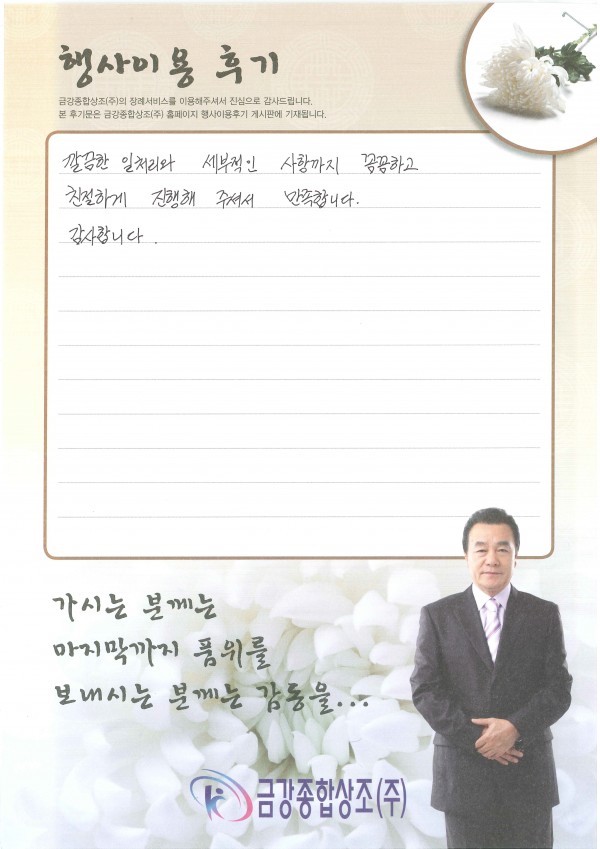 행사이용 후기
금강종합상조(주)의 장례서비스를 이용해주셔서 진심으로 감사드립니다.
본 후기문은 금강종합상조(주) 홈페이지 행사이용후기 게시판에 기재됩니다.
깔끔한 일처리와 세부적인 사항까지 꼼꼼하고
친절하게 진행해 주셔서 만족합니다.
감사합니다.
가시는 분께는
마지막까지 품위를
보내시는 분께는 감동을...
금강종합상조(주)